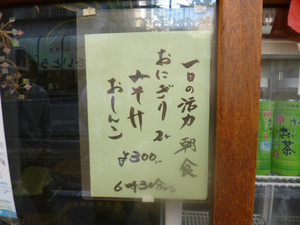 一日の活力 朝食
おにぎり 2ケ
みそ汁
おしんこ
¥300.-
6時30分から
お茶